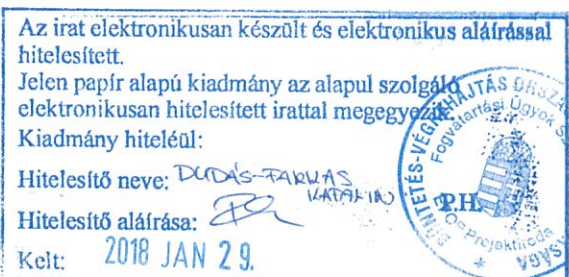 Az irat elektronikusan készült és elektronikus aláírással
hitelesített.
Jelen papír alapú kiadmány az alapul szolgáló
elektronikusan hitelesített irattal megegyezik.
Kiadmány hiteléül:
Hitelesítő neve: DUDÁS-FARKAS
KATALIN
Hitelesítő aláírása:
P.H.
Kelt: 2018 JAN 29.
BÜNTETÉS-VÉGREHAJTÁS ORSZÁ
Fogvatartási Ügyok S
Projektiroda
SÁGA